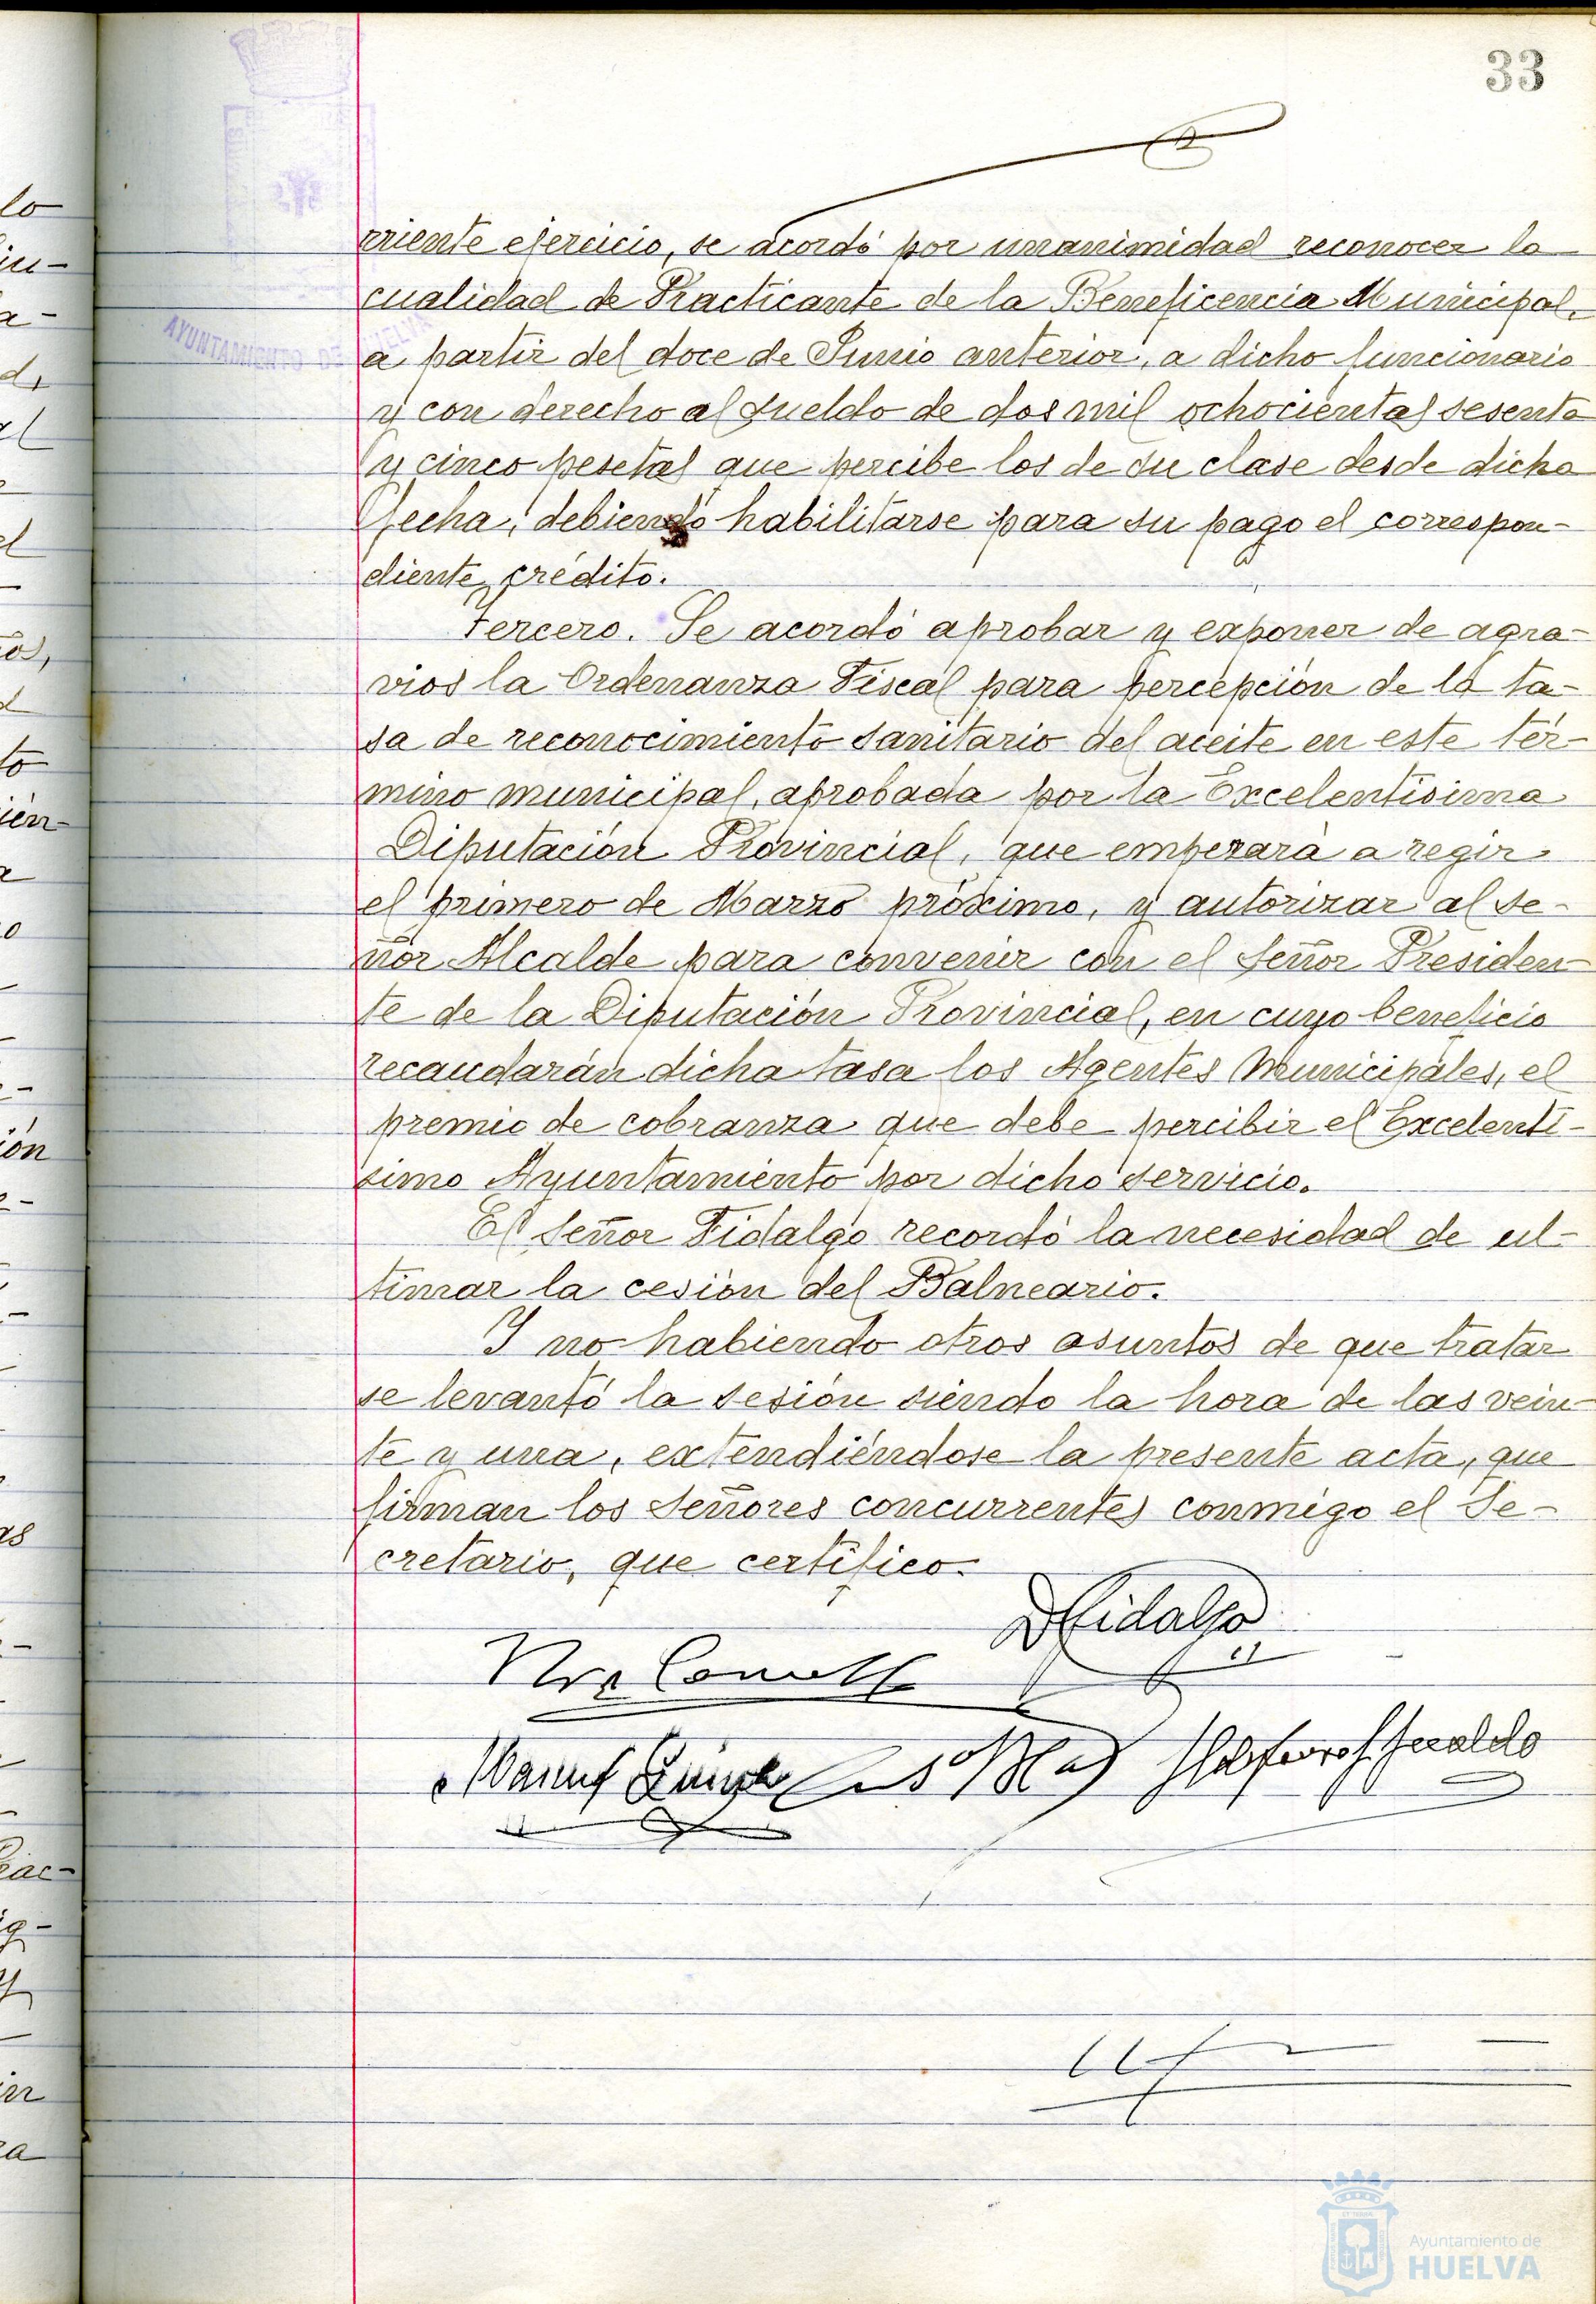 33
rriente ejercicio, se acordó por unanimidad reconocer la
cualidad de Practicante de la Beneficencia Municipal,
a partir del doce de Junio anterior, a dicho funcionario
y con derecho al sueldo de dos mil ochocientas sesenta
y cinco pesetas que percibe los de su clase desde dicha
fecha, debiendo habilitarse para su pago el correspon-
diente crédito.
Tercero. Se acordó aprobar y exponer de agra-
vios la Ordenanza Fiscal para percepción de la ta-
sa de reconocimiento sanitario del aceite en este tér-
mino municipal, aprobada por la Excelentísima
Diputación Provincial, que empezará a regir
el primero de Marzo próximo, y autorizar al Se-
ñor Alcalde para convenir con el Señor Presiden-
te de la Diputación Provincial, en cuyo beneficio
recaudarán dicha tasa los Agentes Municipales, el
premio de cobranza que debe percibir el Excelentí-
simo Ayuntamiento por dicho servicio.
El Señor Fidalgo recordó la necesidad de ul-
timar la cesión del Balneario.
Y no habiendo otros asuntos de que tratar
se levantó la sesión siendo la hora de las vein-
te y una, extendiéndose la presente acta, que
firman los Señores concurrentes conmigo el Se-
cretario, que certifico.
Fidalgo
AYUNTAMIENTO DE HUELVA
Ayuntamiento de
HUELVA